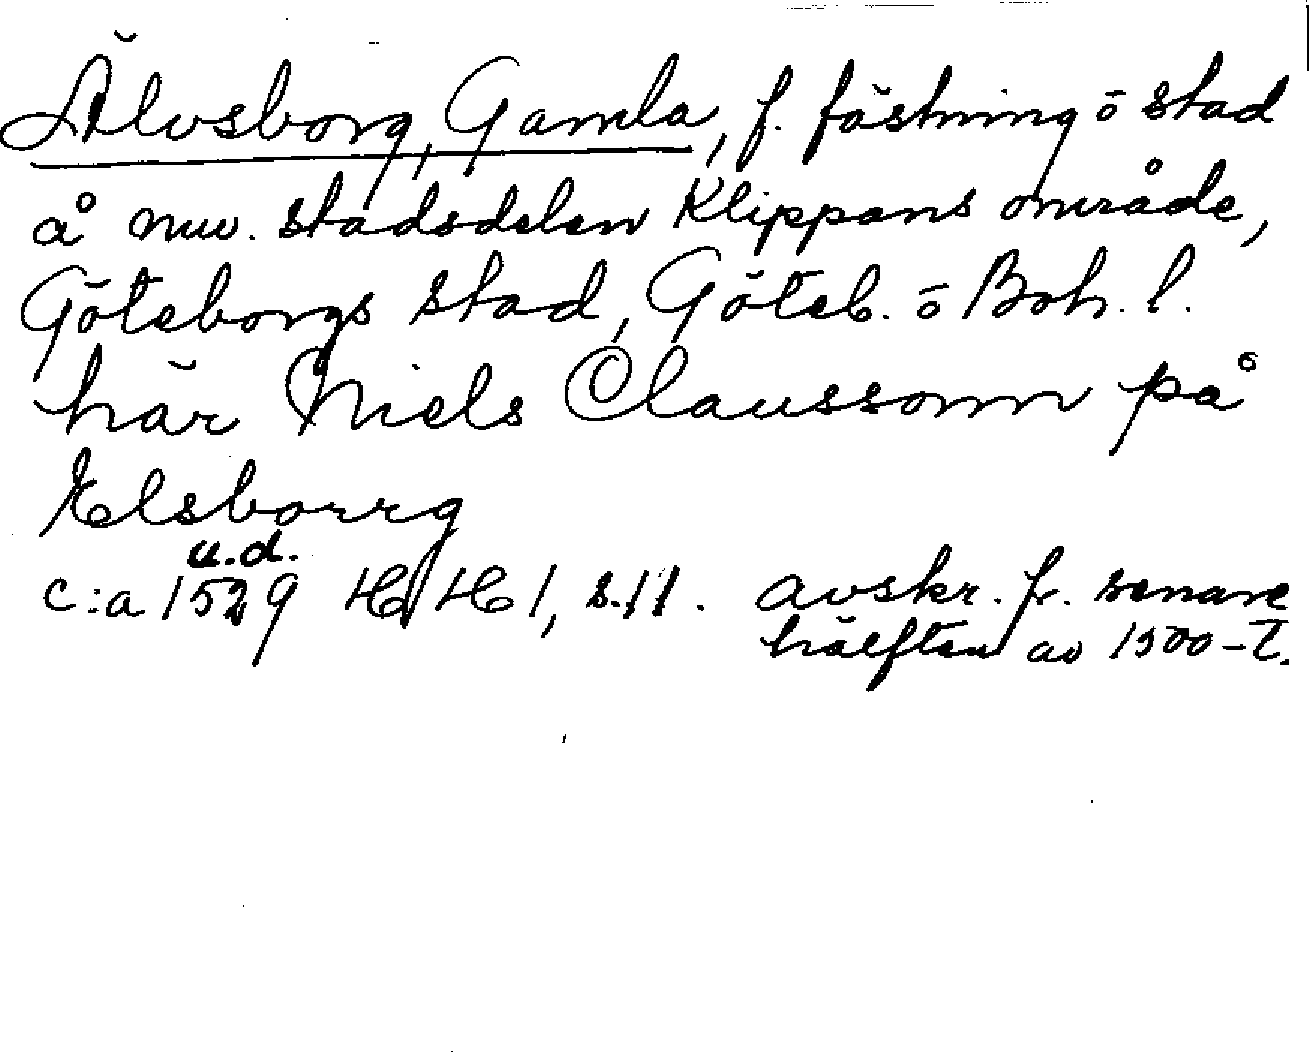 Älvsborg, Gamla, f. fästning o stad
å nuv. stadsdelen Klippans område,
Göteborgs stad, Göteb. o Boh. l.
här Niels Claussonn på
Elsborrg
u.d.
c:a 1529 HH 1, s.11. avskr. fr. senare
hälften av 1500-t.